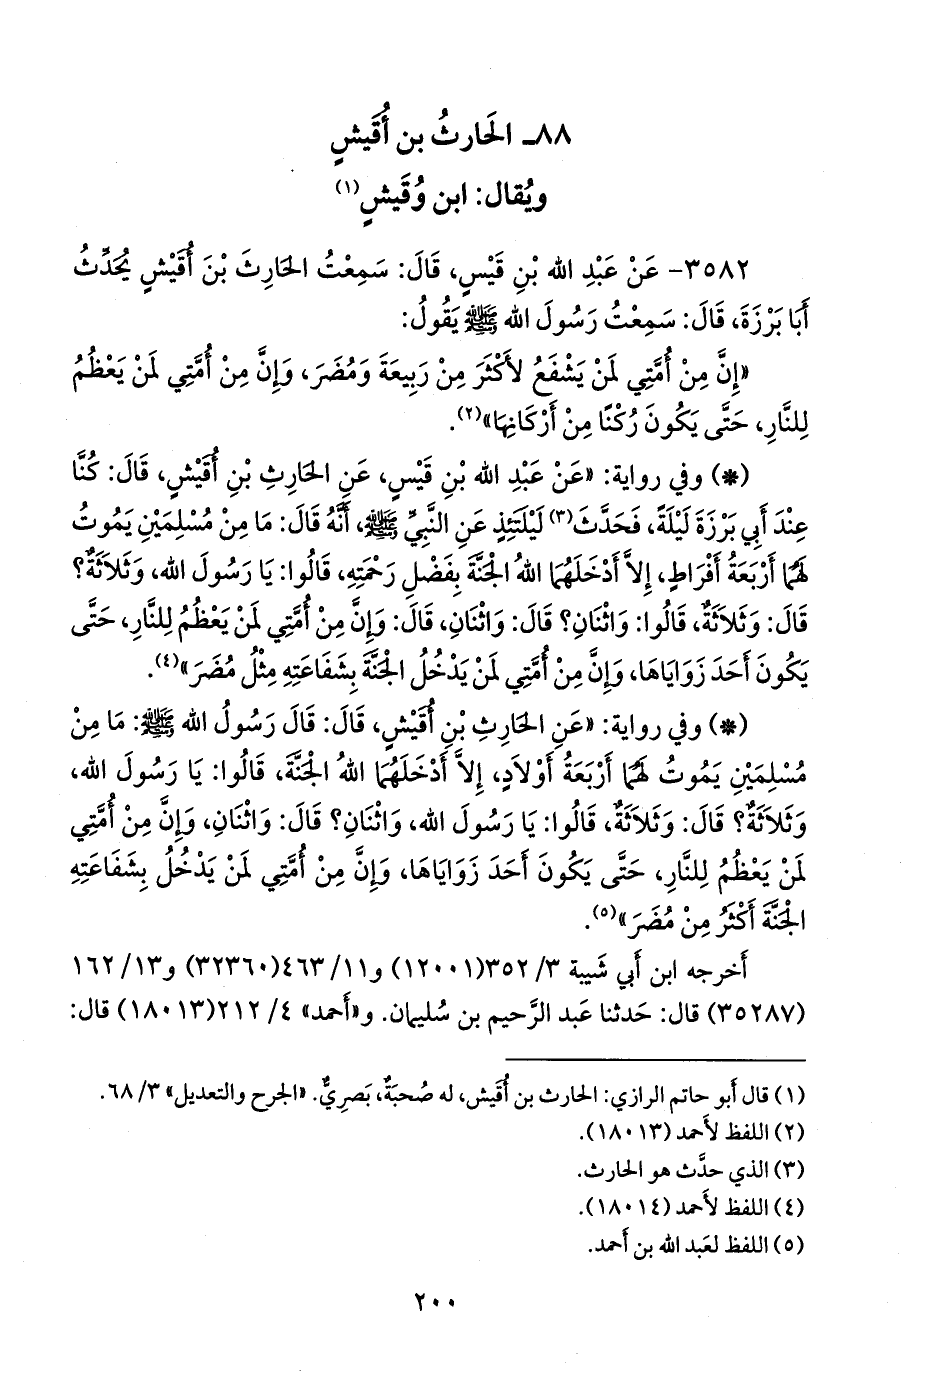 ٨٨ـ الحَارثُ بن أُقَيشٍ
ويُقال: ابن وُقَيشٍ(١)
٣٥٨٢- عَنْ عَبْدِ الله بْنِ قَيْسٍ، قَالَ: سَمِعْتُ الحَارِثَ بْنَ أُقَيْشٍ يُحَدِّثُ
أَبَا بَرْزَةَ، قَالَ: سَمِعْتُ رَسُولَ الله ﷺ يَقُولُ:
«إِنَّ مِنْ أُمَّتِي لَمَنْ يَشْفَعُ لأَكْثَرَ مِنْ رَبِيعَةَ وَمُضَرَ، وَإِنَّ مِنْ أُمَّتِي لَمَنْ يَعْظُمُ
لِلنَّارِ، حَتَّى يَكُونَ رُكْنًا مِنْ أَرْكَانِهَا»(٢).
(*) وفي رواية: «عَنْ عَبْدِ الله بْنِ قَيْسٍ، عَنِ الحَارِثِ بْنِ أُقَيْشٍ، قَالَ: كُنَّا
عِنْدَ أَبِي بَرْزَةَ لَيْلَةً، فَحَدَّثَ(٣) لَيْلَتَئِذٍ عَنِ النَّبِيِّ ﷺ، أَنَّهُ قَالَ: مَا مِنْ مُسْلِمَيْنِ يَمُوتُ
لَهُمَا أَرْبَعَةُ أَفْرَاطٍ، إِلاَّ أَدْخَلَهُمَا اللهُ الجَنَّةَ بِفَضْلِ رَحْمَتِهِ، قَالُوا: يَا رَسُولَ الله، وَثَلاَثَةٌ؟
قَالَ: وَثَلاَثَةٌ، قَالُوا: وَاثْنَانِ؟ قَالَ: وَاثْنَانِ، قَالَ: وَإِنَّ مِنْ أُمَّتِي لَمَنْ يَعْظُمُ لِلنَّارِ، حَتَّى
يَكُونَ أَحَدَ زَوَايَاهَا، وَإِنَّ مِنْ أُمَّتِي لَمَنْ يَدْخُلُ الجَنَّةَ بِشَفَاعَتِهِ مِثْلُ مُضَرَ»(٤).
(*) وفي رواية: «عَنِ الحَارِثِ بْنِ أُقَيْشٍ، قَالَ: قَالَ رَسُولُ الله ﷺ: مَا مِنْ
مُسْلِمَيْنِ يَمُوتُ لَهُمَا أَرْبَعَةُ أَوْلاَدٍ، إِلاَّ أَدْخَلَهُمَا اللهُ الجَنَّةَ، قَالُوا: يَا رَسُولَ الله،
وَثَلاَثَةٌ؟ قَالَ: وَثَلاَثَةٌ، قَالُوا: يَا رَسُولَ الله، وَاثْنَانِ؟ قَالَ: وَاثْنَانِ، وَإِنَّ مِنْ أُمَّتِي
لَمَنْ يَعْظُمُ لِلنَّارِ، حَتَّى يَكُونَ أَحَدَ زَوَايَاهَا، وَإِنَّ مِنْ أُمَّتِي لَمَنْ يَدْخُلُ بِشَفَاعَتِهِ
الجَنَّةَ أَكْثَرُ مِنْ مُضَرَ»(٥).
أَخرجه ابن أَبي شَيبة ٣/ ٣٥٢(١٢٠٠١) و١١/ ٤٦٣(٣٢٣٦٠) و١٣/ ١٦٢
(٣٥٢٨٧) قال: حَدثنا عَبد الرَّحيم بن سُليمان. و«أَحمد» ٤/ ٢١٢(١٨٠١٣) قال:
(١) قال أَبو حاتم الرازي: الحارث بن أُقَيش، له صُحبَةٌ، بَصرِيٌّ. «الجرح والتعديل» ٣/ ٦٨.
(٢) اللفظ لأَحمد (١٨٠١٣).
(٣) الذي حدَّث هو الحارث.
(٤) اللفظ لأَحمد (١٨٠١٤).
(٥) اللفظ لعَبد الله بن أَحمد.
٢٠٠